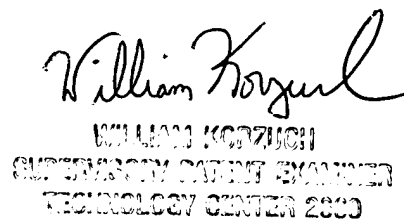 William Korzuch
WILLIAM KORZUCH
SUPERVISORY PATENT EXAMINER
TECHNOLOGY CENTER 2600